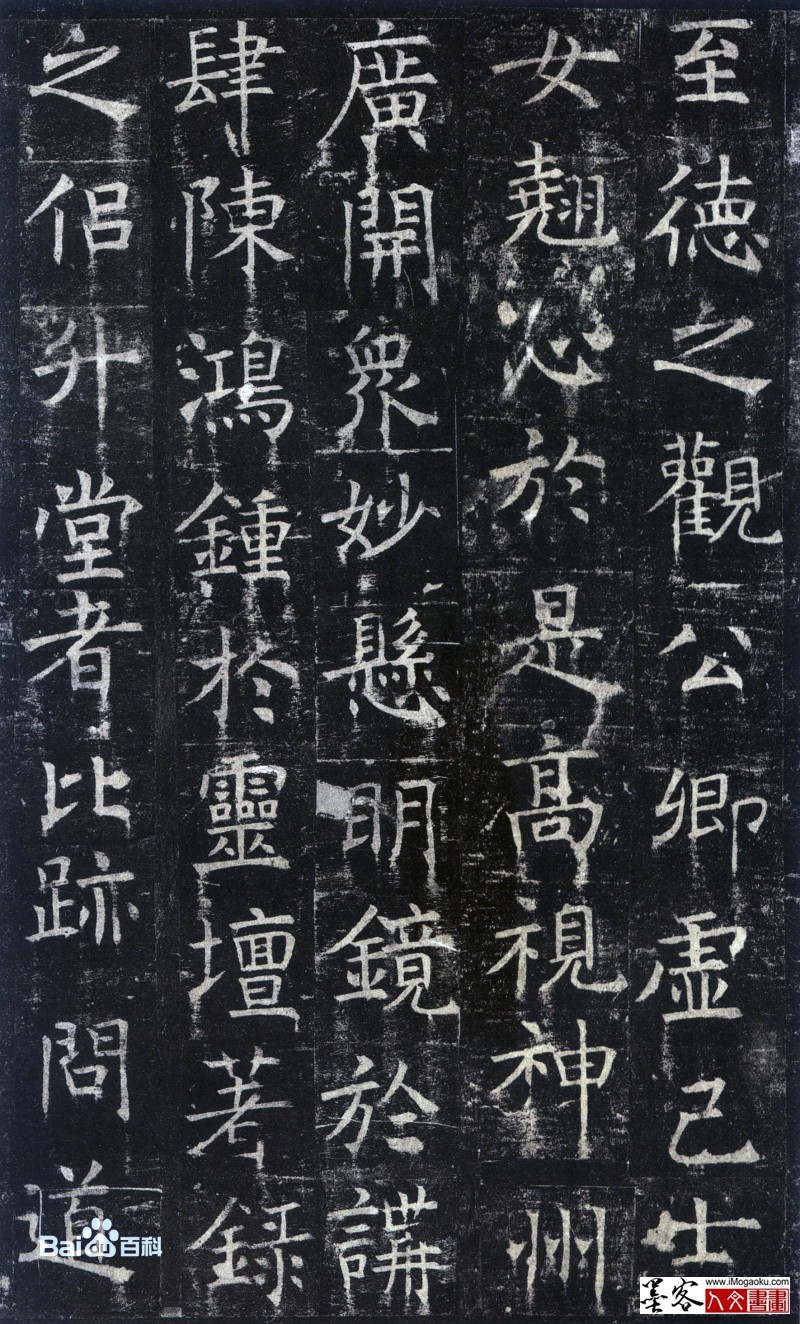 至德之觀公卿虛己士
女翹心於是高視神州
廣開眾妙懸明鏡於講
肆陳鴻鍾於靈壇著錄
之侶升堂者比跡問道
Bai百科
www.iMogaoku.com
墨客人文書畫